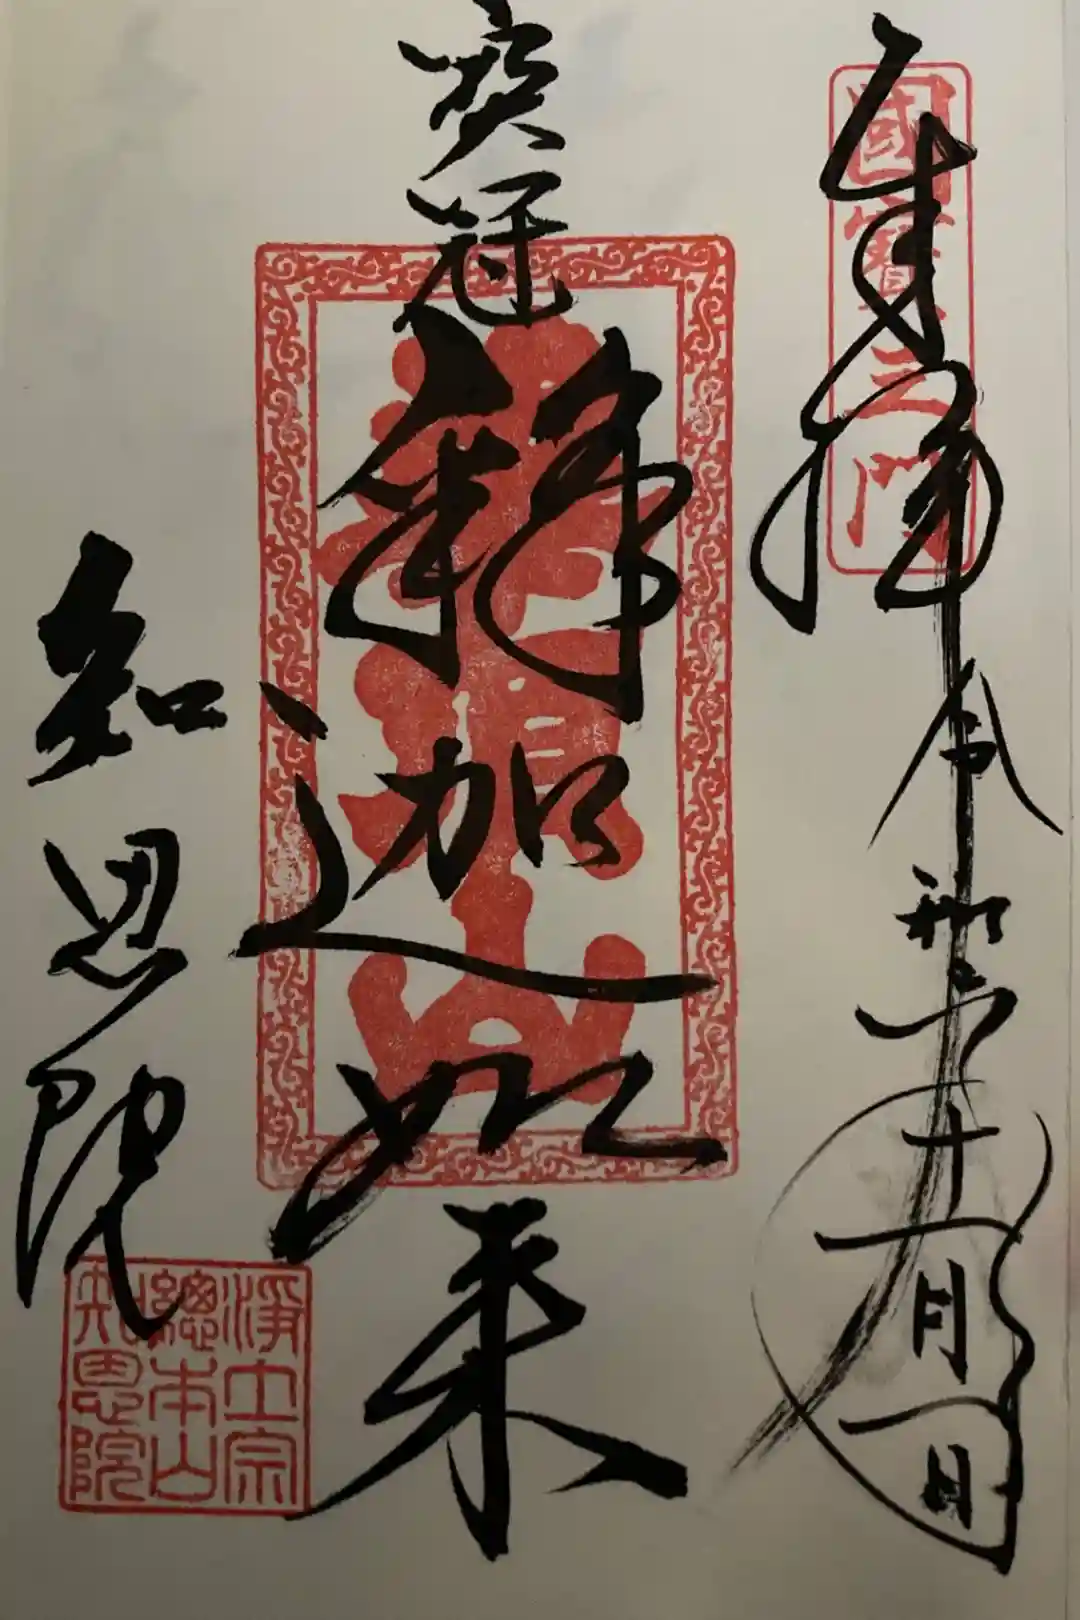 國寶三門
奉拝
令和
十一月一日
華頂山
寳冠
釋迦如来
知恩院
淨土宗
總本山
知恩院